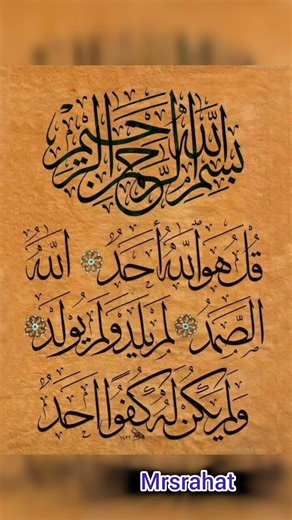 بِسْمِ اللهِ الرَّحْمٰنِ الرَّحِيْمِ
قُلْ هُوَ اللهُ أَحَدٌ اللهُ
الصَّمَدُ لَمْ يَلِدْ وَلَمْ يُولَدْ
وَلَمْ يَكُنْ لَهُ كُفُوًا أَحَدٌ
Mrsrahat